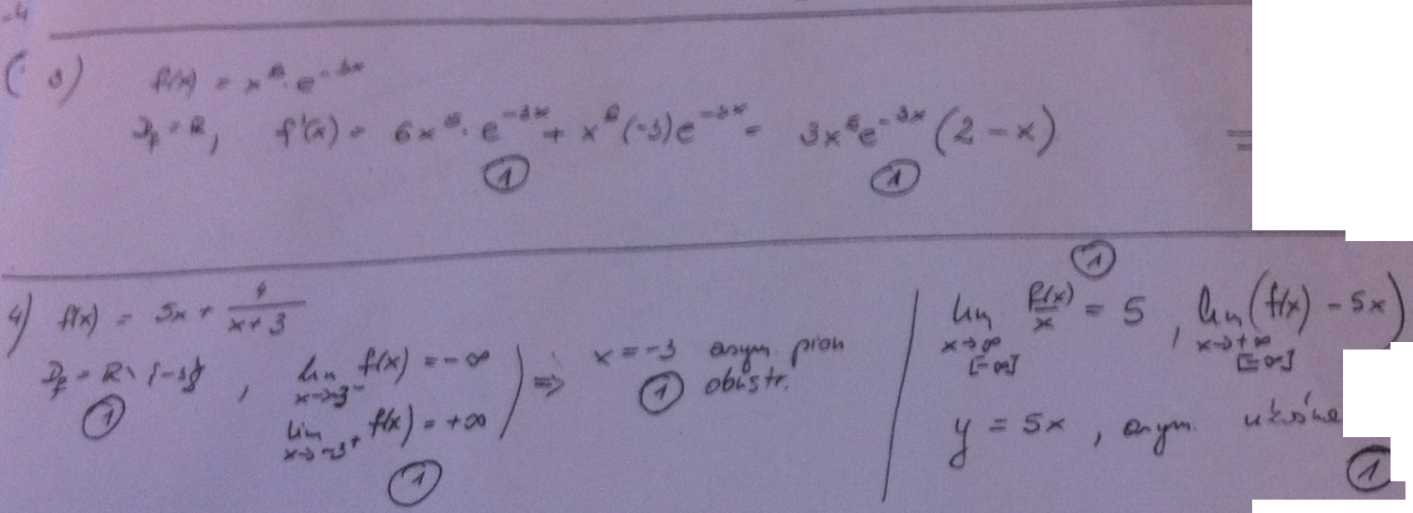 -4
3) f(x) = x⁶ · e^(-3x)
D_f = R, f'(x) = 6x⁵ · e^(-3x) + x⁶(-3)e^(-3x) = 3x⁵e^(-3x)(2 - x) =
① ①
4) f(x) = 5x + 4/(x+3)
D_f = R \ {-3}, lim x→-3⁻ f(x) = -∞
lim x→-3⁺ f(x) = +∞ ) ⇒ x = -3 asym. pion obustr.
① ① ①
lim x→∞ [-∞] f(x)/x = 5, lim x→+∞ [-∞] (f(x) - 5x)
①
y = 5x, asym. ukośna
①